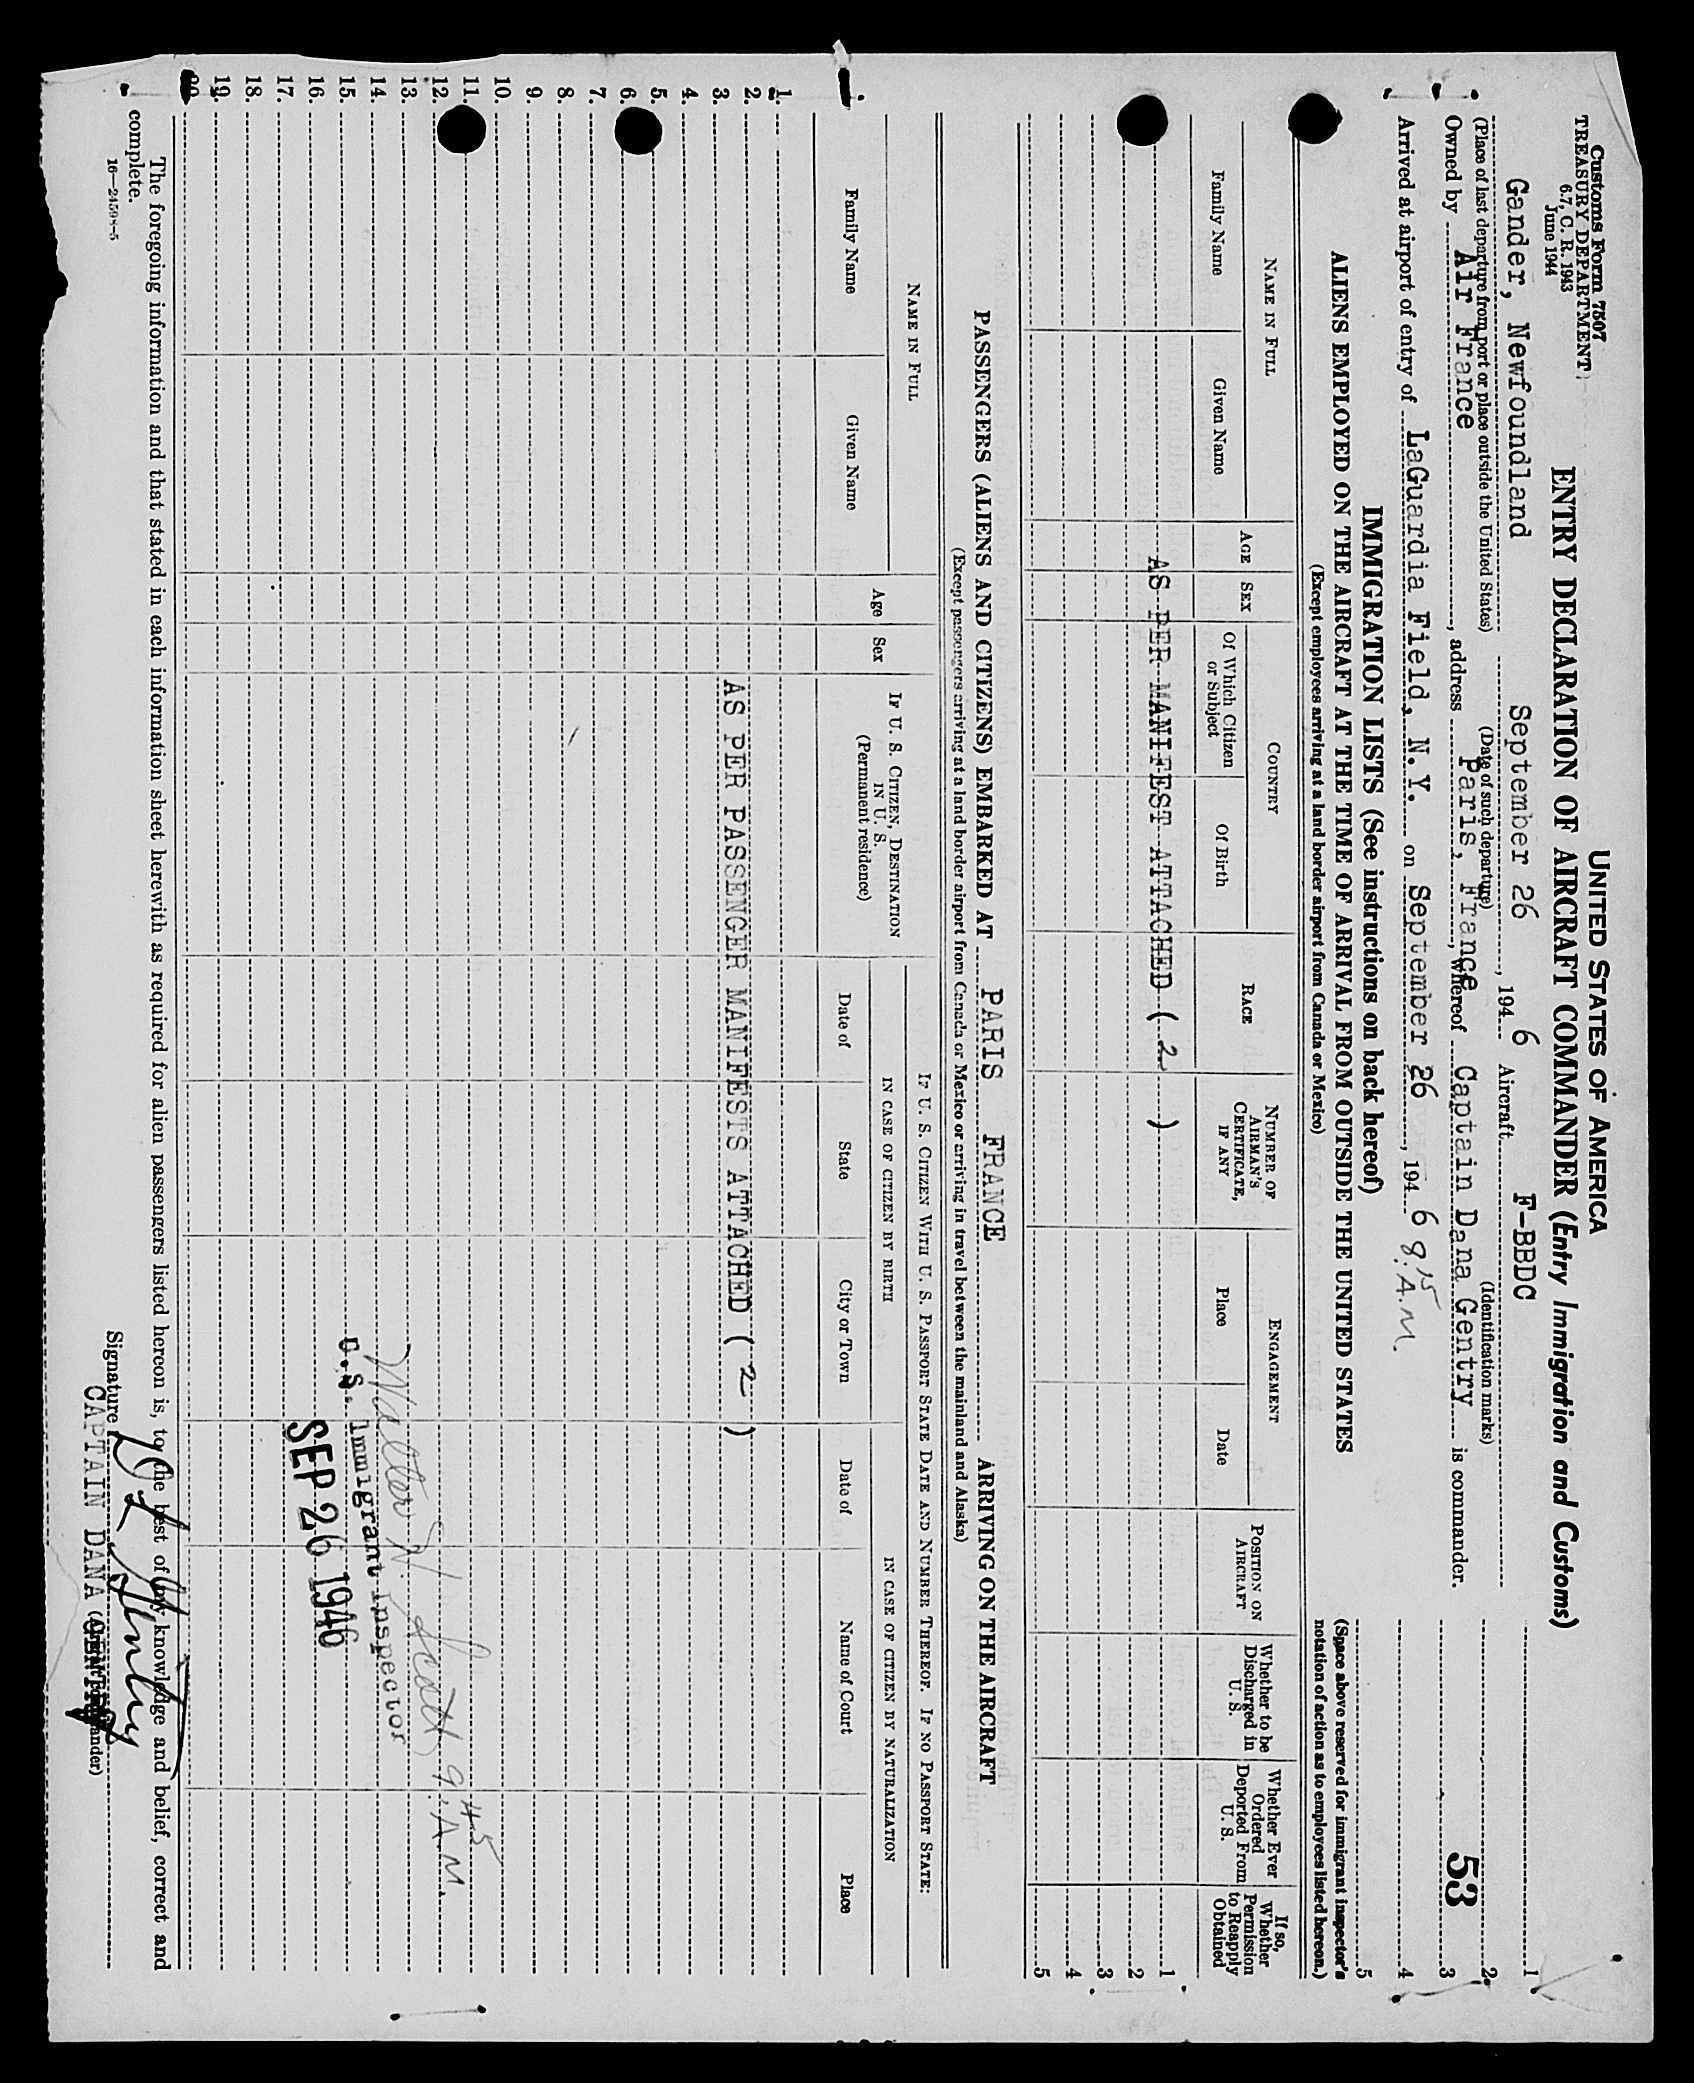 Customs Form 7507
TREASURY DEPARTMENT
6.7, C. R. 1943
June 1944
UNITED STATES OF AMERICA
ENTRY DECLARATION OF AIRCRAFT COMMANDER (Entry Immigration and Customs)
Gander, Newfoundland September 26, 194 6 Aircraft F-BBDC
(Place of last departure from port or place outside the United States) (Date of such departure) (Identification marks)
Owned by Air France, address Paris, France, whereof Captain Dana Gentry is commander.
Arrived at airport of entry of LaGuardia Field, N.Y. on September 26, 194 6 8:15 A.M.
1
2
3
4
5
53
(Space above reserved for immigrant inspector's notation of action as to employees listed hereon.)
IMMIGRATION LISTS (See instructions on back hereof)
ALIENS EMPLOYED ON THE AIRCRAFT AT THE TIME OF ARRIVAL FROM OUTSIDE THE UNITED STATES
(Except employees arriving at a land border airport from Canada or Mexico)
NAME IN FULL
Family Name
Given Name
AGE
SEX
COUNTRY
Of Which Citizen or Subject
Of Birth
RACE
NUMBER OF AIRMAN'S CERTIFICATE, IF ANY
ENGAGEMENT
Place
Date
POSITION ON AIRCRAFT
Whether to be Discharged in U. S.
Whether Ever Ordered Deported From U. S.
If so, Whether Permission to Reapply Obtained
AS PER MANIFEST ATTACHED ( 2 )
1
2
3
4
5
PASSENGERS (ALIENS AND CITIZENS) EMBARKED AT PARIS FRANCE ARRIVING ON THE AIRCRAFT
(Except passengers arriving at a land border airport from Canada or Mexico or arriving in travel between the mainland and Alaska)
NAME IN FULL
Family Name
Given Name
Age
Sex
IF U. S. CITIZEN, DESTINATION IN U. S.
(Permanent residence)
IF U. S. CITIZEN WITH U. S. PASSPORT STATE DATE AND NUMBER THEREOF. IF NO PASSPORT STATE:
IN CASE OF CITIZEN BY BIRTH
IN CASE OF CITIZEN BY NATURALIZATION
Date of
State
City or Town
Date of
Name of Court
Place
1.
2.
3. AS PER PASSENGER MANIFESTS ATTACHED ( 2 )
4.
5.
6.
7.
8.
9.
10.
11.
12.
13.
14.
15.
16.
17.
18.
19.
20.
Walter N. Scott 9:45 A.M.
U.S. Immigrant Inspector
SEP 26 1946
The foregoing information and that stated in each information sheet herewith as required for alien passengers listed hereon is, to the best of my knowledge and belief, correct and
complete.
16—24598-5
Signature D L Gentry
CAPTAIN DANA GENTRY